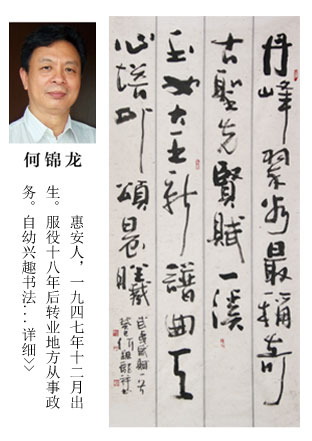 何锦龙
惠安人，一九四七年十二月出
生。服役十八年后转业地方从事政
务。自幼兴趣书法...详细>>
丹峰翠 最稱奇
古聖先賢賦一溪
玉女大王新譜曲天
心 頌晨曦